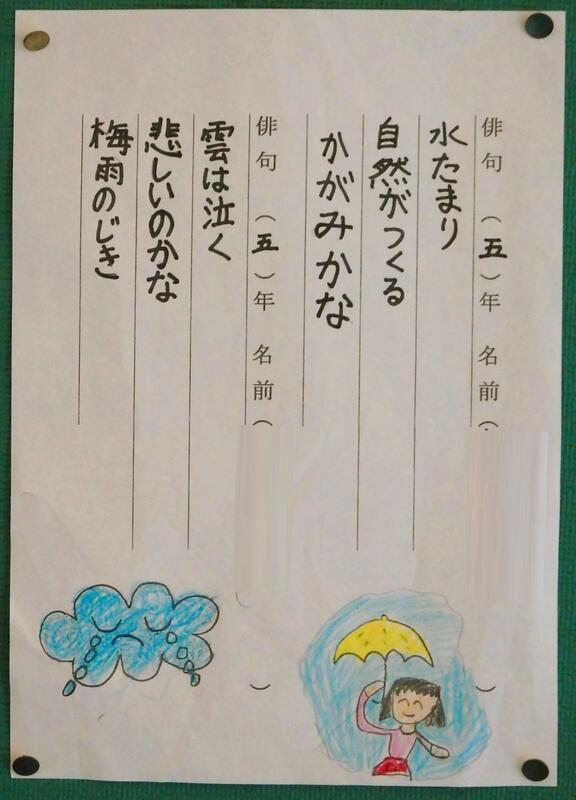 俳句 （五）年 名前（
水たまり
自然がつくる
かがみかな
俳句 （五）年 名前（
雲は泣く
悲しいのかな
梅雨のじき